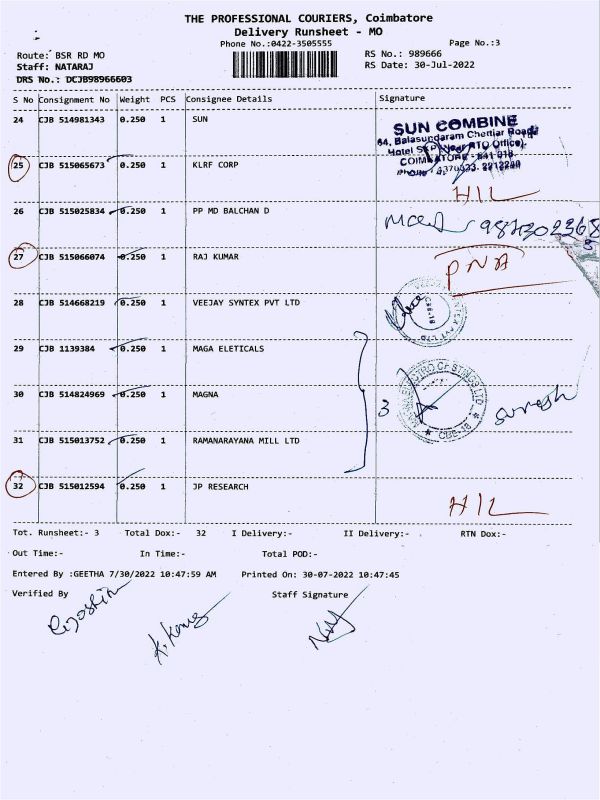 THE PROFESSIONAL COURIERS, Coimbatore
Delivery Runsheet - MO
Phone No.:0422-3505555
Page No.:3
Route: BSR RD MO
RS No.: 989666
Staff: NATARAJ
RS Date: 30-Jul-2022
DRS No.: DCJB98966603
S No Consignment No Weight PCS Consignee Details Signature
24 CJB 514981343 0.250 1 SUN
SUN COMBINE
64, Balasundaram Chettiar Road
Hotel SKP (Near RTO Office)
COIMBATORE - 641 018.
25 CJB 515065673 0.250 1 KLRF CORP HIL
26 CJB 515025834 0.250 1 PP MD BALCHAN D
27 CJB 515066074 0.250 1 RAJ KUMAR PNA
28 CJB 514668219 0.250 1 VEEJAY SYNTEX PVT LTD
29 CJB 1139384 0.250 1 MAGA ELETICALS
30 CJB 514824969 0.250 1 MAGNA 3 suresh
31 CJB 515013752 0.250 1 RAMANARAYANA MILL LTD
32 CJB 515012594 0.250 1 JP RESEARCH HIL
Tot. Runsheet:- 3 Total Dox:- 32 I Delivery:- II Delivery:- RTN Dox:-
Out Time:- In Time:- Total POD:-
Entered By :GEETHA 7/30/2022 10:47:59 AM Printed On: 30-07-2022 10:47:45
Verified By Staff Signature